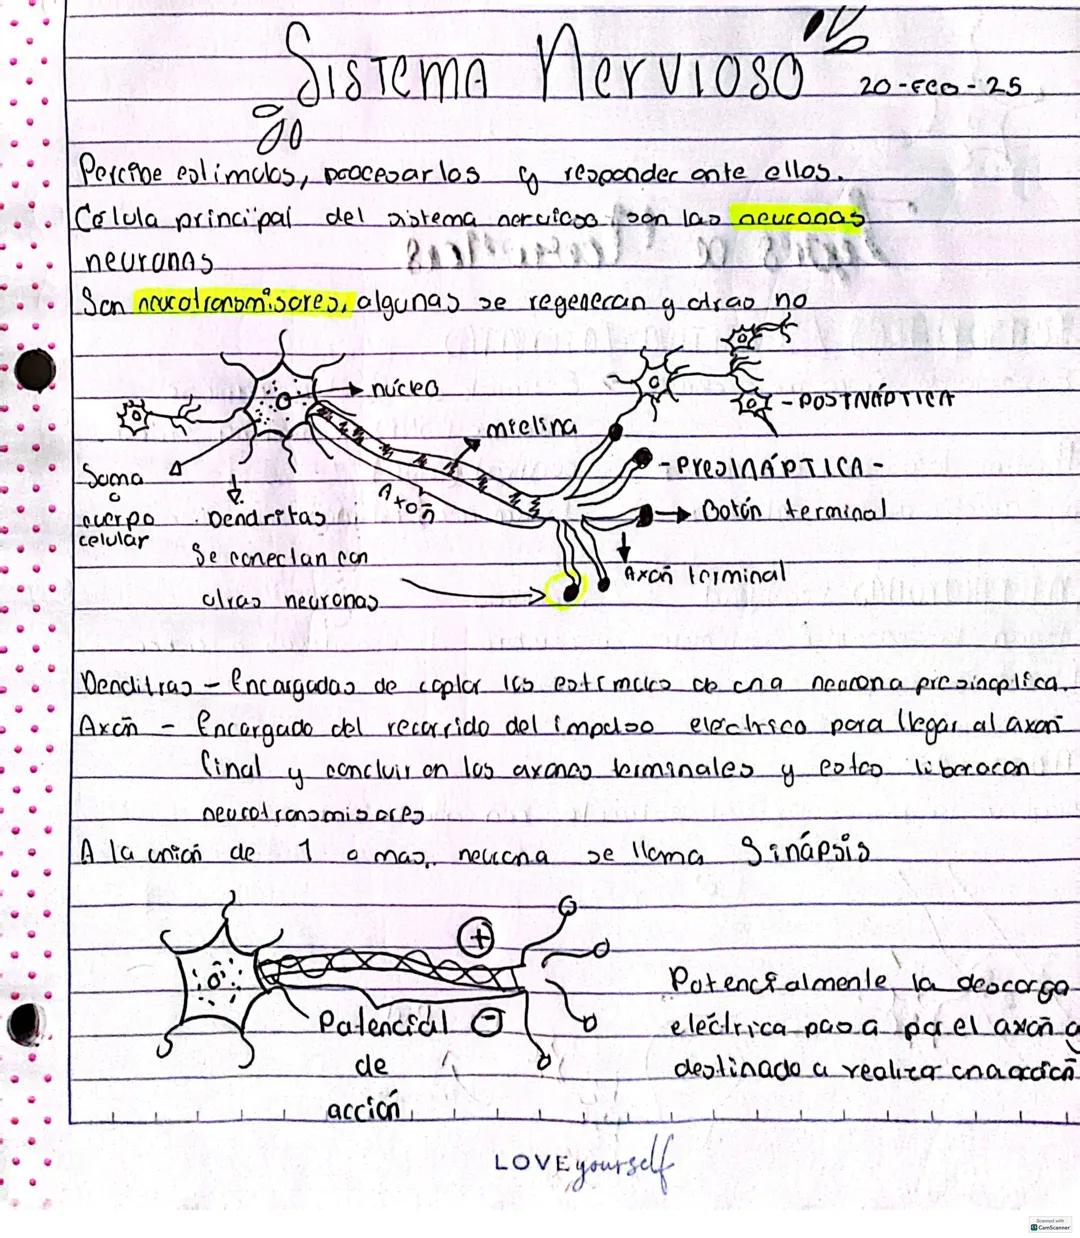 Sistema Nervioso
20-Feb-25
Percibe estimulos, procesarlos y responder ante ellos.
Célula principal del sistema nervioso son las neuronas
neuronas
Son neurotransmisores, algunas se regeneran y otras no
núcleo
mielina
-POSTNÁPTICA
-PRESINÁPTICA-
Soma
o
cuerpo
celular
Dendritas
Axón
Botón terminal
Axón terminal
Se conectan con
otras neuronas
Dendítras - Encargadas de captar los estímulos de una neurona presinaptica.
Axón - Encargado del recorrido del impulso eléctrico para llegar al axón
final y concluir en los axones terminales y estos liberaran
neurotransmisores
A la unión de 1 o mas, neurona se llama Sinápsis
+
Potencial -
de
acción
Potencialmente la descarga
eléctrica pasa por el axón
destinado a realizar una acción
LOVE yourself
Scanned with
CamScanner